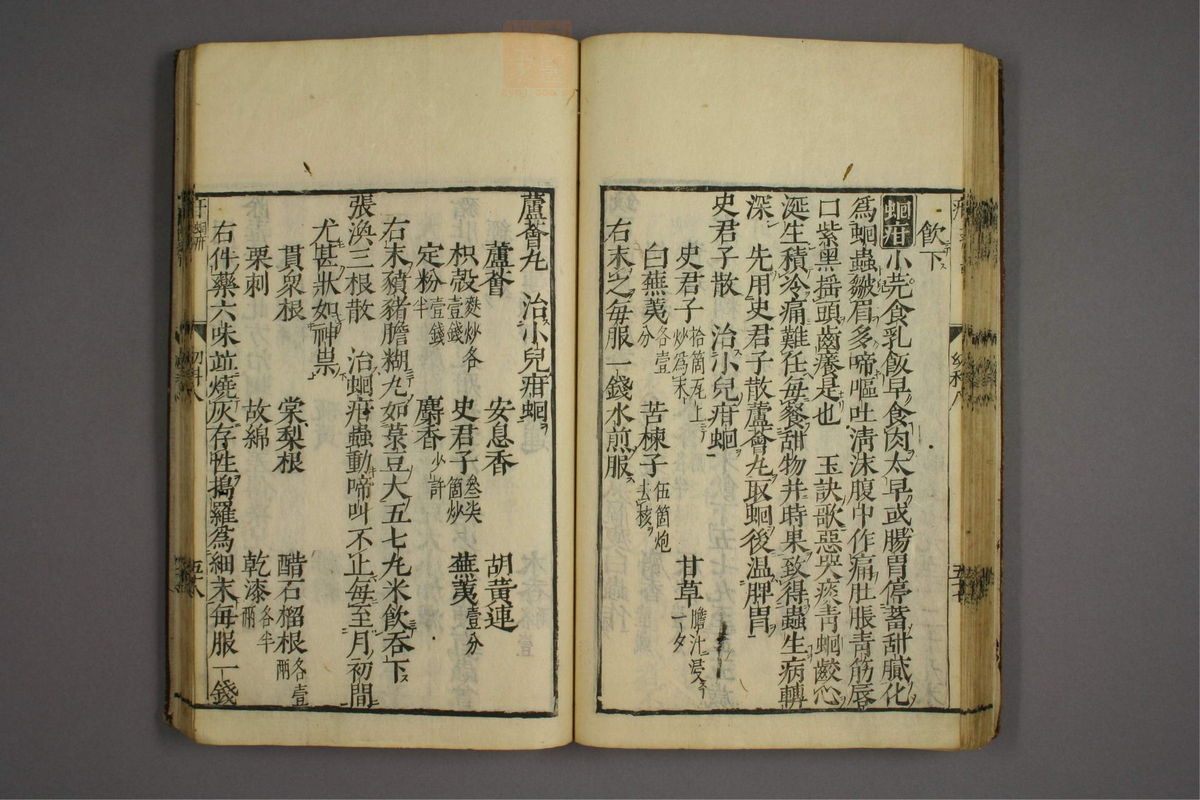 飲下
蛔疳小兒食乳飯早食肉太早或腸胃停蓄甜膩化
為蛔蟲皺眉多啼嘔吐淸沫腹中作痛肚脹靑筋唇
口紫黑揺頭齒癢是也　玉訣歌惡哭痰靑蛔齩心
涎生積冷痛難任每餐甜物并時果致得蟲生病轉
深　先用史君子散蘆薈丸取蛔後温脾胃
史君子散　治小兒疳蛔
史君子拾箇瓦上炒為末　甘草膽汁浸一夕
白蕪荑各壹分　苦楝子伍箇炮去核
右末之每服一錢水煎服
蘆薈丸　治小兒疳蛔
蘆薈　安息香　胡黃連
枳殼麩炒各壹錢　史君子叁柒箇炒　蕪荑壹分
定粉壹錢半　麝香少許
右末豶猪膽糊丸如菉豆大五七丸米飲吞下
張渙三根散　治蛔疳蟲動啼叫不止每至月初間
尤甚狀如神祟
貫衆根　棠梨根　醋石榴根各壹兩
栗刺　故綿　乾漆各半兩
右件藥六味並燒灰存性搗羅為細末每服一錢
幼科八
五十八